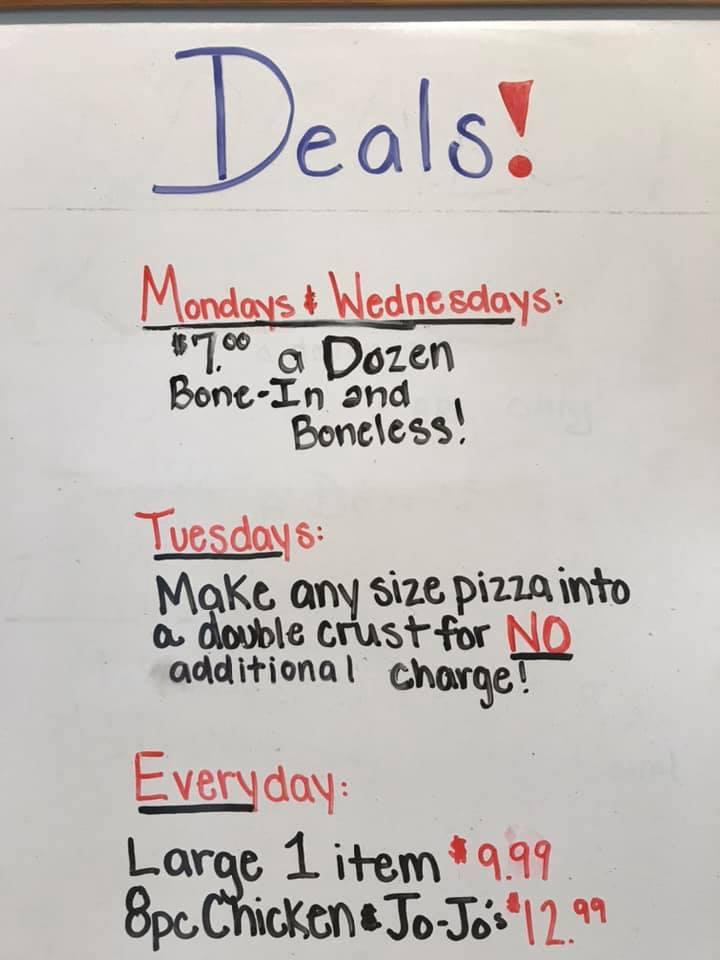 Deals!
Mondays & Wednesdays:
$7.00 a Dozen
Bone-In and
Boneless!
Tuesdays:
Make any size pizza into
a double crust for NO
additional charge!
Everyday:
Large 1 item $9.99
8pc Chicken & Jo-Jo's $12.99